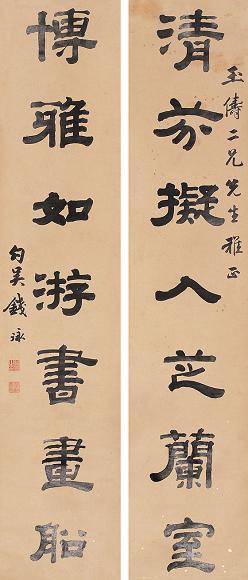 玉儔二兄先生雅正
清芬擬入芝蘭室
博雅如游書畫船
勾吳錢泳